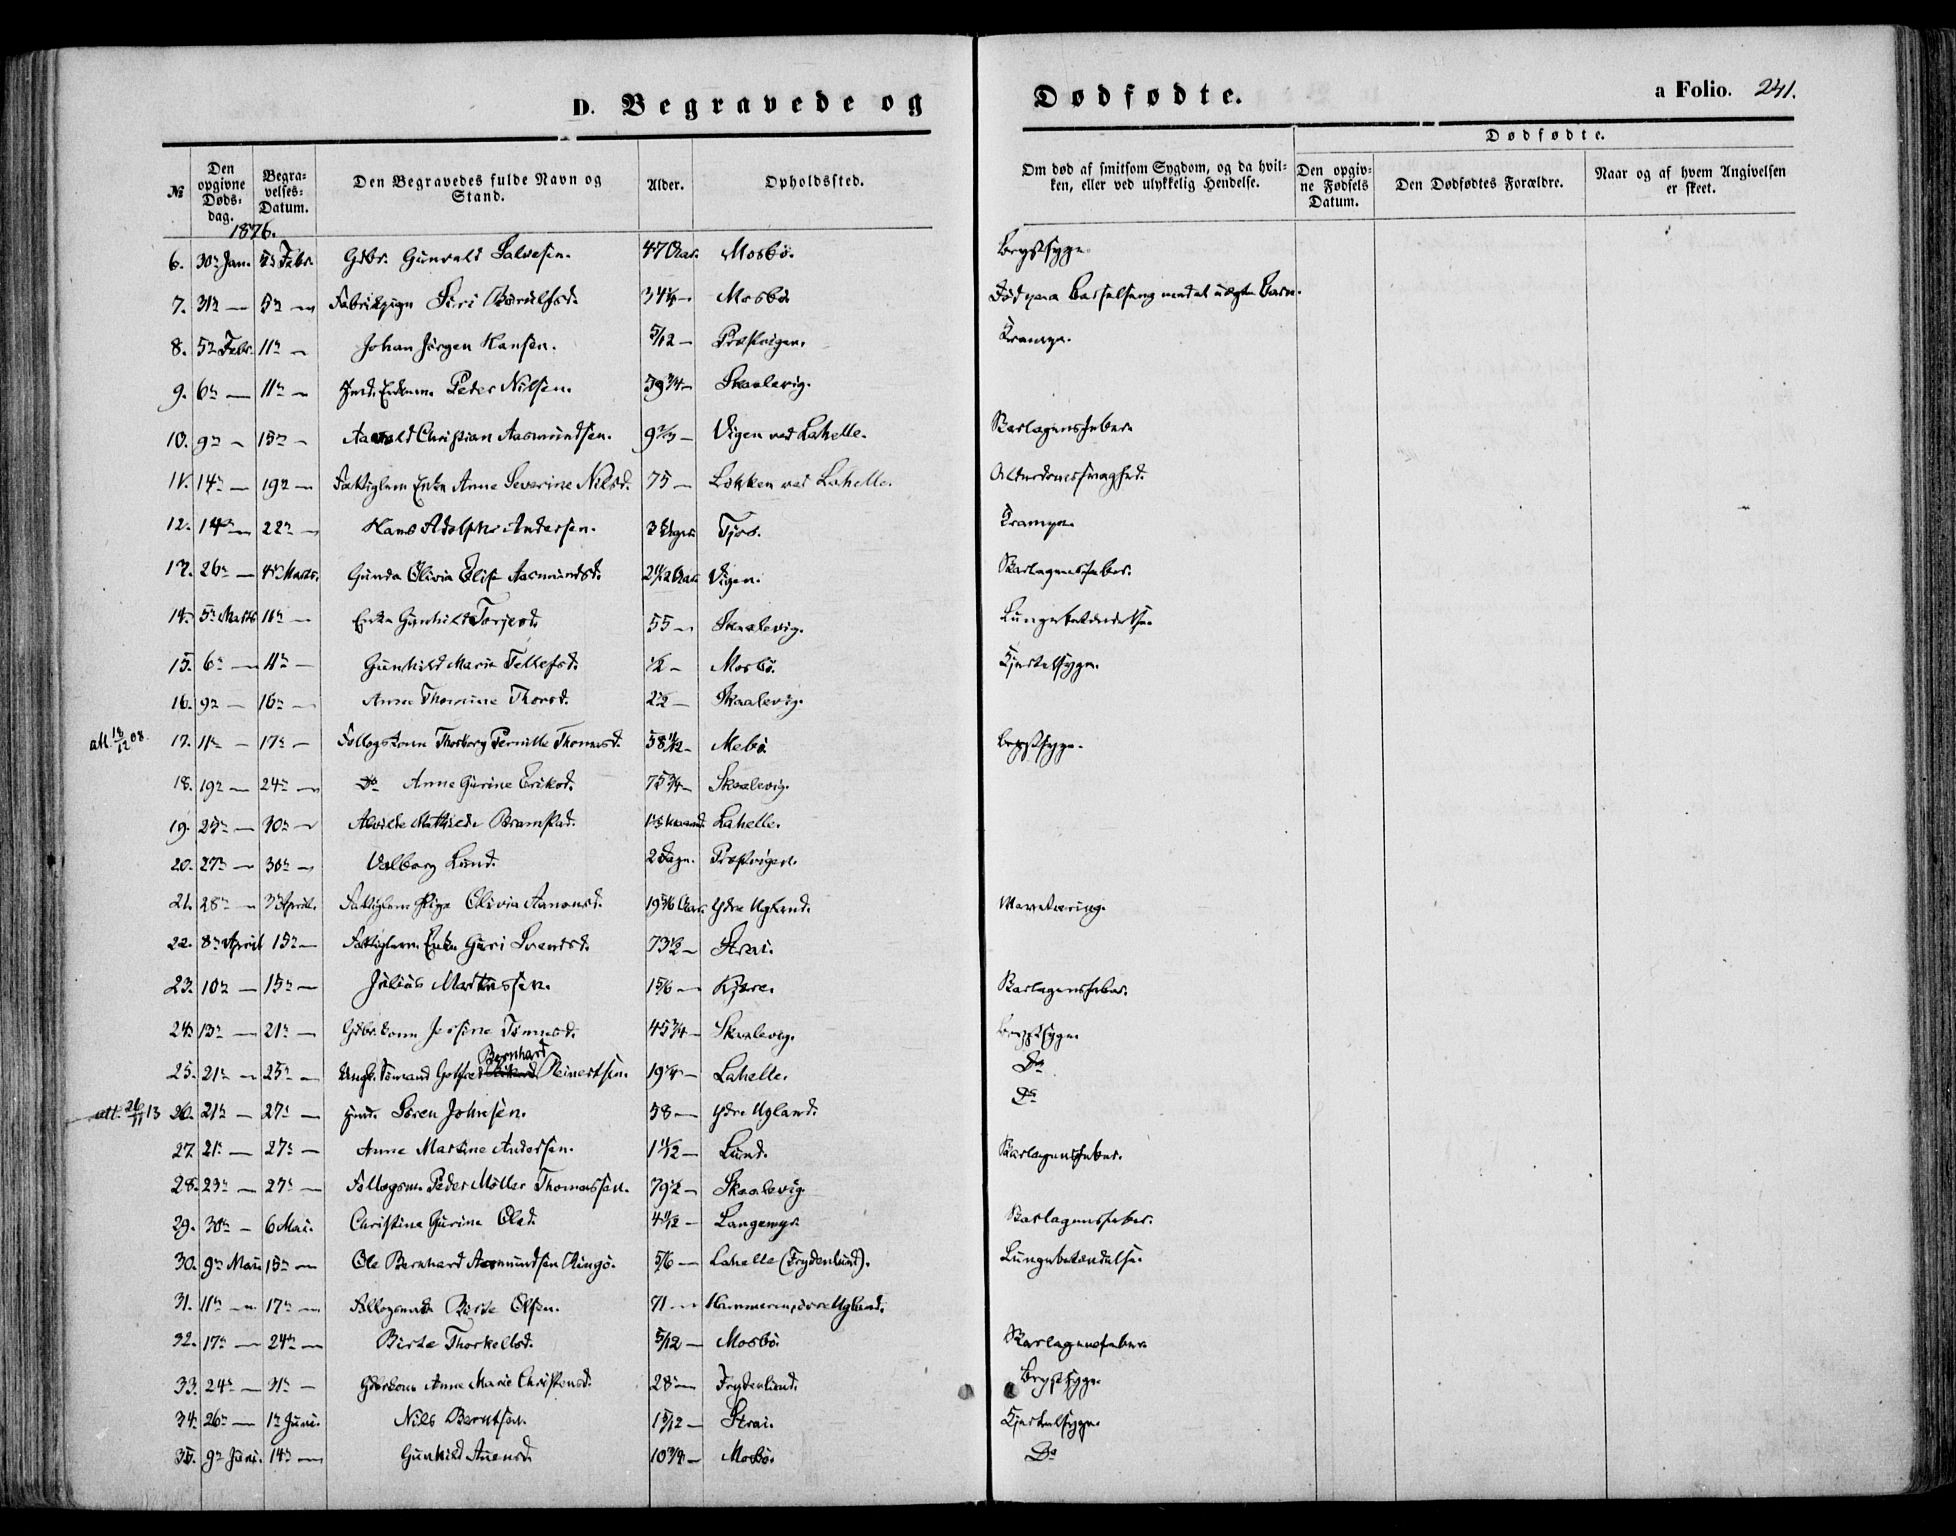 D. Begravede og Dødfødte. a Folio. 241.
Dødfødte.
№ Den opgivne Døds-dag. Begra-velses-Datum. Den Begravedes fulde Navn og Stand. Alder. Opholdssted. Om død af smitsom Sygdom, og da hvil-ken, eller ved ulykkelig Hendelse. Den opgiv-ne Fødsels Datum. Den Dødfødtes Forældre. Naar og af hvem Angivelsen er skeet.
1876.
6. 30te Jan. Febr. Gdbr. Gunvald Salvesen. 47 Aar. Mosbö. Brystsyge.
7. 31te — 5te — Fabrikpige Siri Börulfsd. 34 — Mosbö. Död paa Barselseng med et uægte Barn.
8. 5te Febr. 11te — Johan Jörgen Hansen. 5/12 — Præstvigen. Krampe.
9. 6te — 11te — Ind. Enkem. Peder Nilsen. 59 3/4 — Skaalevig.
10. 9de — 15de — Christian Aasmundsen. 9 2/3 — Vigen ved Lahelle. Skarlagensfeber.
11. 14de — 19de — Fattiglem Enke Anne Severine Nilsd. 75 — Lökken ved Lahelle. Alderdomssvaghed.
12. 14de — 22de — Hans Adolph Andersen. 3 Uger Tjos. Krampe.
13. 26de — 4de Marts. Gunda Olivia Elise Aasmundsd. 2 1/12 Aar. Vigen. Skarlagensfeber.
14. 5te Marts 11te — Enke Gunhild Torjesd. 55 — Skaalevig. Lungebetændelse.
15. 6te — 11te — Gunhild Marie Tellefsd. 1/2 — Mosbö. Kjertelsyge.
16. 9de — 16de — Anne Thomine Thorsd. 2 1/2 — Skaalevig.
att. 18/12 08. 17. 11te — 17de — Föllogskone Thorborg Pernille Thomasd. 58 11/12 — Mebö. Brystsyge.
18. 19de — 24de — Do Anne Gurine Eriksd. 75 3/4 — Skaalevig.
19. 25de — 30te — Alvilde Mathilde Bramstad. Lahelle.
20. 27de — 30te — Valborg Lund. 2 Dage. Præstvigen.
21. 28de — 3die April. Fattiglem Pige Olivia Aanensd. 19 5/6 Aar. Ydre Ugland. Marvtæring.
22. 8de April 15de — Fattiglem Enke Guri Svendsd. 73 1/2 — Strai.
23. 10de — 15de — Julius Markussen. 1 5/6 — Kjære. Skarlagensfeber.
24. 13de — 21de — Gdbr.kone Jersine Tönnesd. 45 3/4 — Skaalevig. Brystsyge.
25. 21de — 25de — Ungk. Sömand Gotfred Bernhard Reinertsen. 19 1/4 — Lahelle. Do
att. 26/11 13 26. 21de — 27de — Ind. Sören Johnsen. 58 — Ydre Ugland. Do
27. 21de — 27de — Anne Martine Andersen. 1 1/12 — Lund. Skarlagensfeber.
28. 23de — 27de — Föllogsm. Peder Möller Thomassen. 79 1/2 — Skaalevig.
29. 30te — 6 Mai. Christine Gurine Olsd. 4 1/12 — Langemyr. Skarlagensfeber.
30. 9de Mai 15de — Ole Bernhard Aasmundsen Ringö. 5/6 — Lahelle (Frydenlund). Lungebetændelse.
31. 11te — 17de — Föllogsenke Birte Olsen. 71 — Hammeren, övre Ugland.
32. 17de — 24de — Birte Thorkelsd. 5/12 — Mosbö. Skarlagensfeber.
33. 24de — 31te — Gdbrkone Anne Marie Christensd. 28 — Frydenlund. Brystsyge.
34. 26de — 1te Juni. Nils Berntsen. 1 5/12 — Strai. Kjertelsyge.
35. 9de Juni. 14de — Gunhild Auensd. 10 3/4 — Mosbö. Do